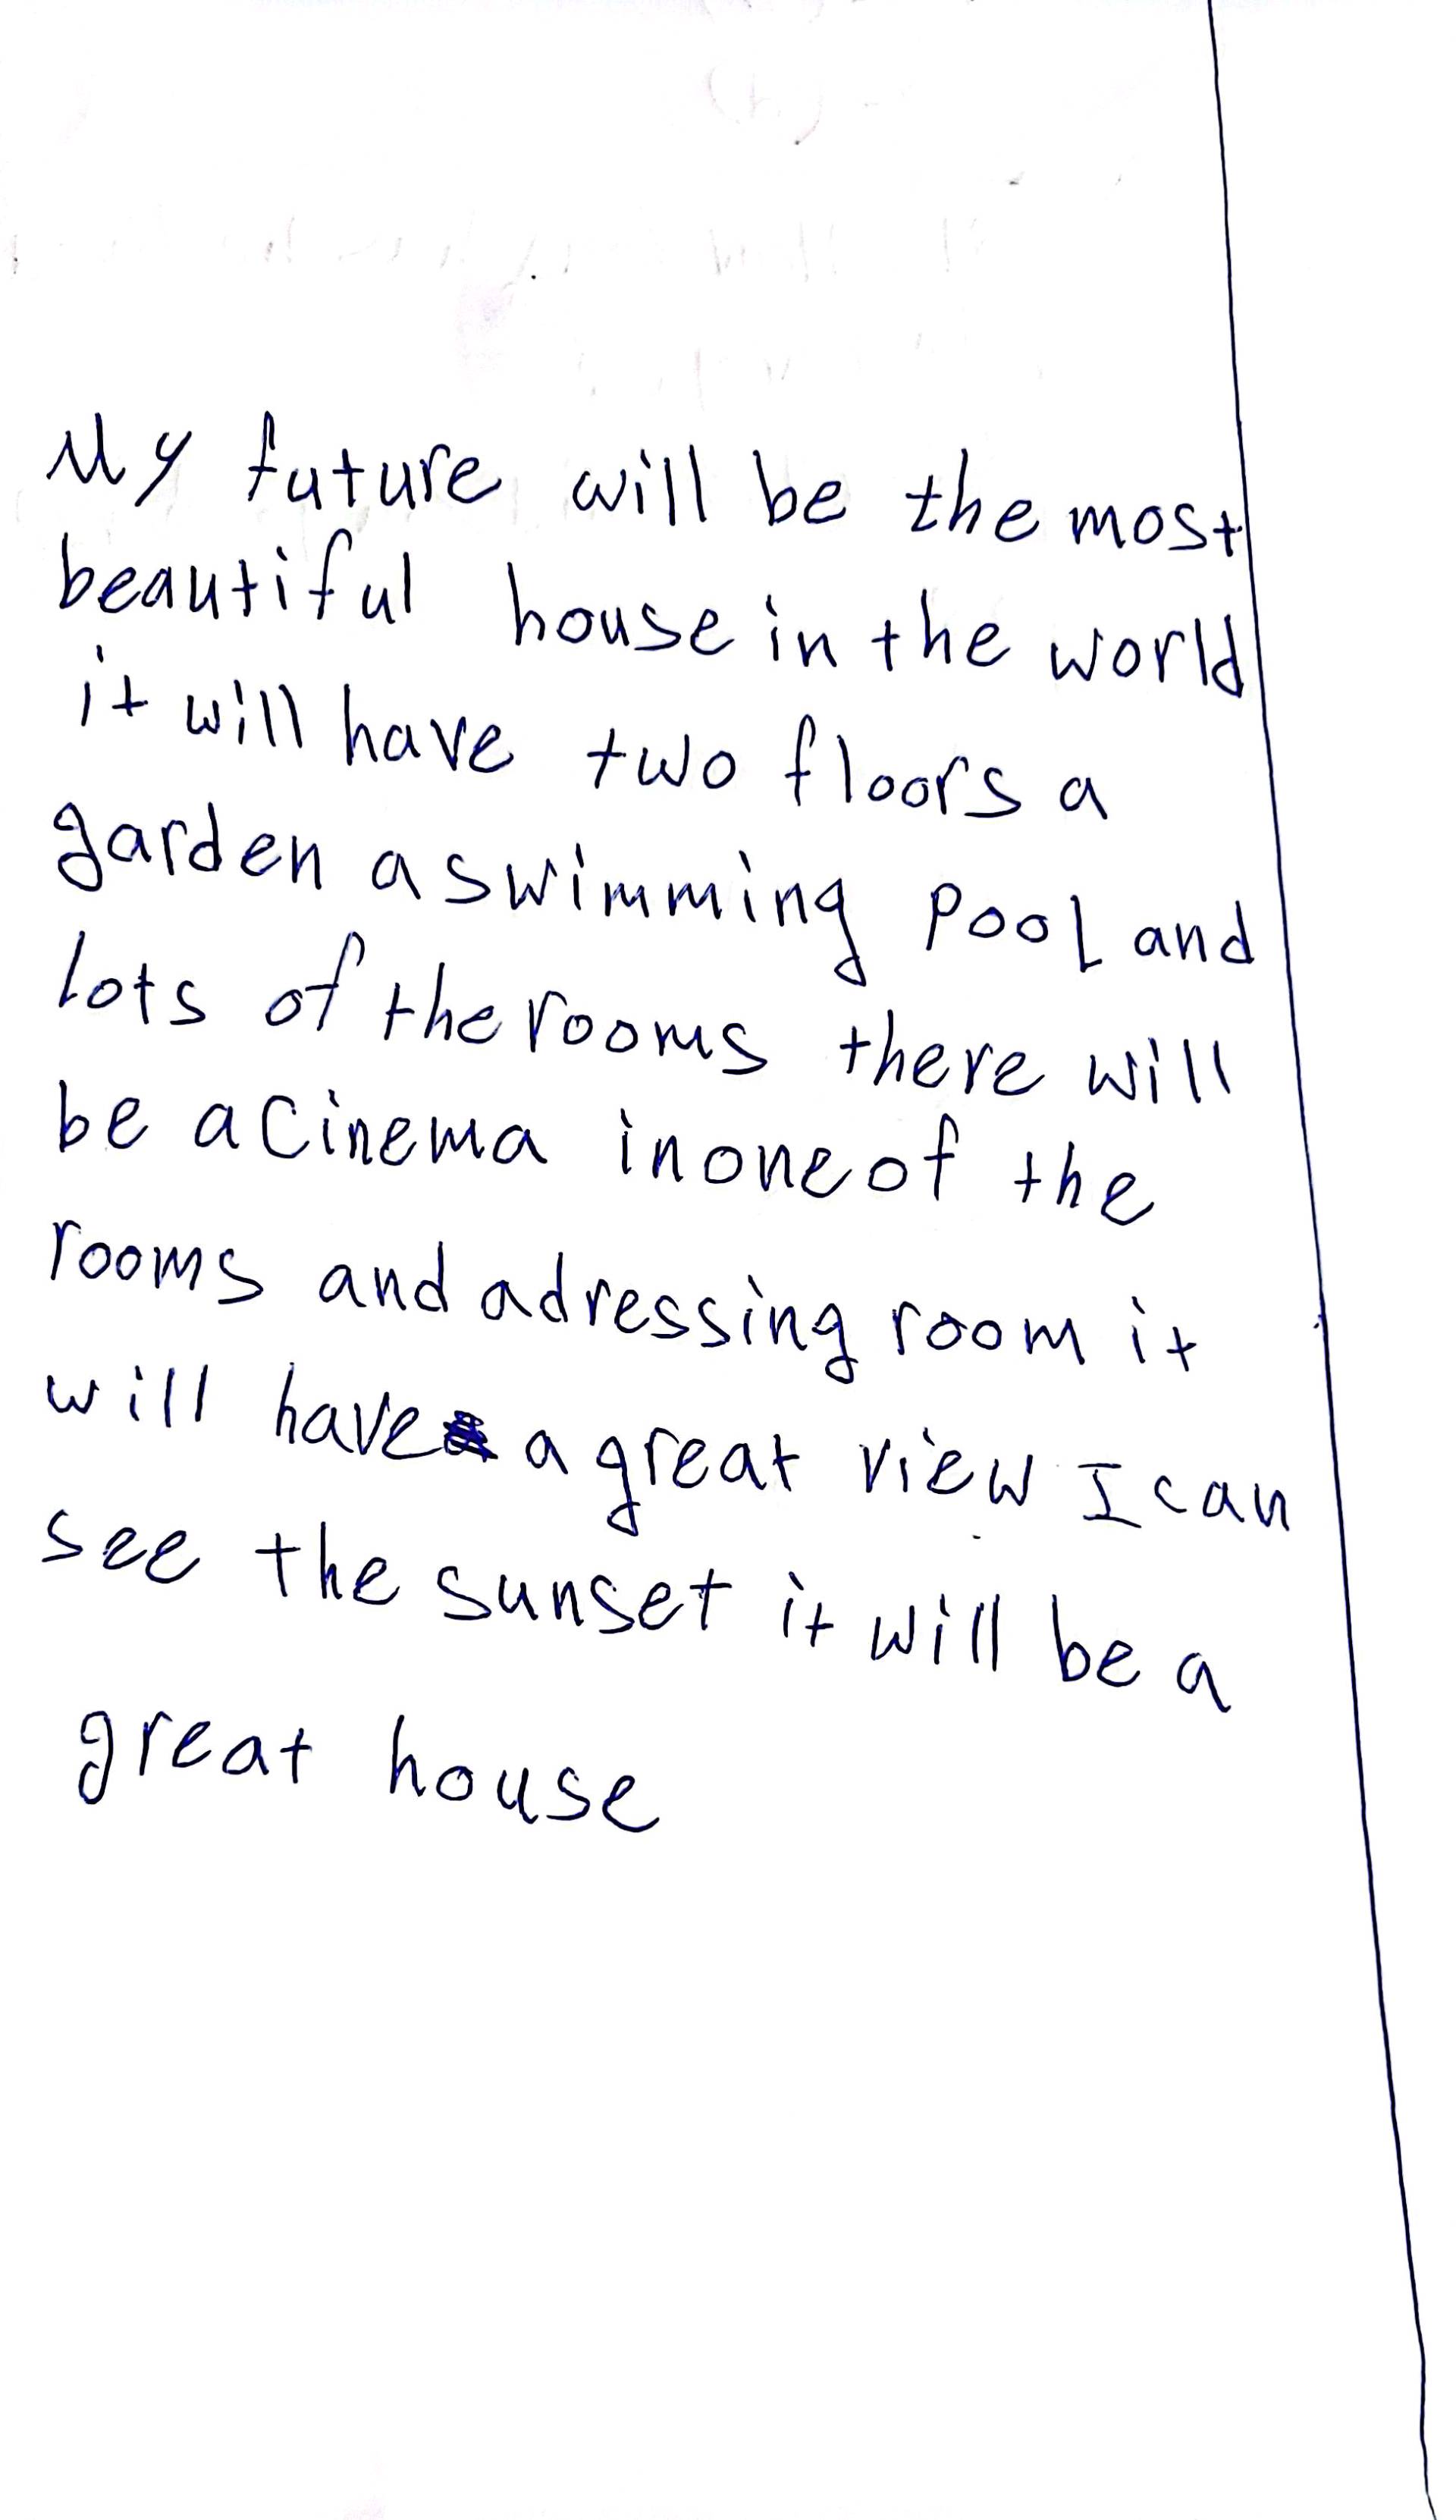 My future will be the most
beautiful house in the world
it will have two floors a
garden a swimming pool and
lots of the rooms there will
be a cinema in one of the
rooms and a dressing room it
will have a great view I can
see the sunset it will be a
great house